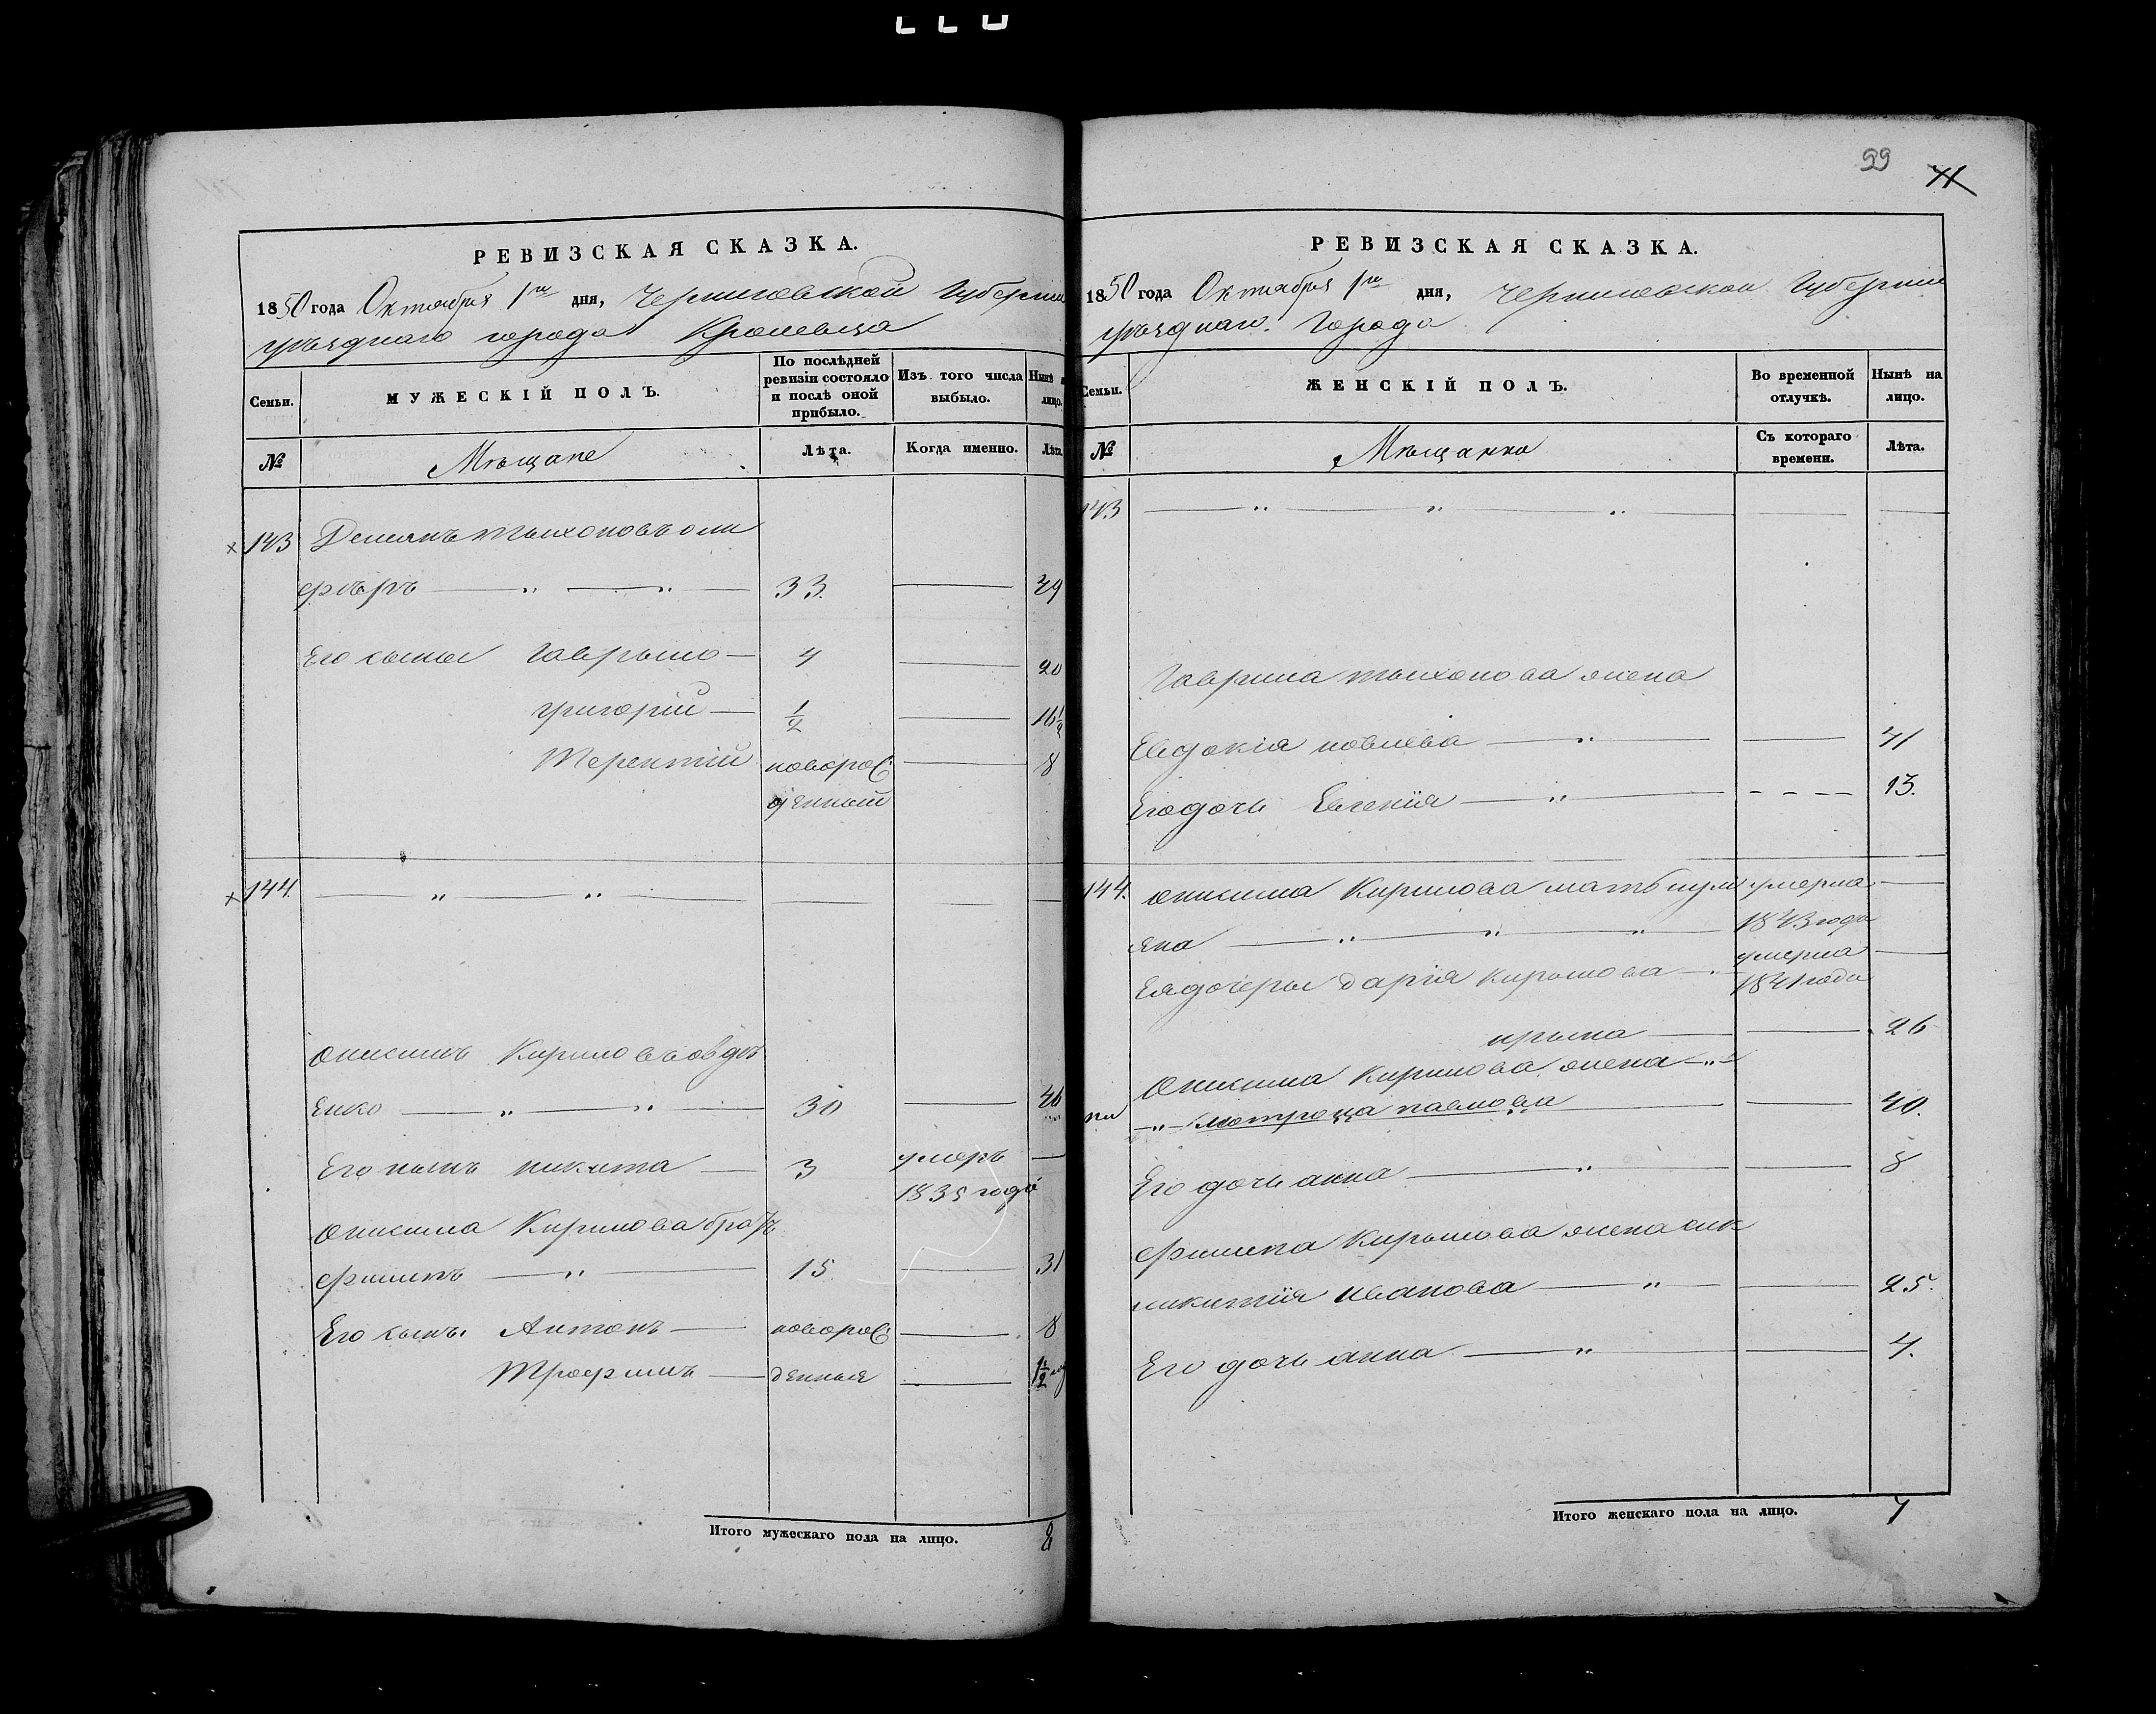 РЕВИЗСКАЯ СКАЗКА.
1850 года Октября 1го дня, Черниговской Губерніи
уѣзднаго города Кролевца
Семьи.
МУЖЕСКІЙ ПОЛЪ.
По послѣдней ревизіи состояло и послѣ оной прибыло.
Изъ того числа выбыло.
Нынѣ лицо.
№
Мѣщане
Лѣта.
Когда именно.
Лѣта
143 Демянъ Тыхоновъ
33. 49
Его сыны Гаврыло 4 20
Григорій 1/2 16 1/2
Терентій новорож 8
денный
144.
Онисимъ Кириловъ Овдѣ
енко 30 46
Его сынъ Никита 3 умеръ
1835 года
Онисима Кирилова братъ
Филипъ 15. 31
Его сынъ Антонъ новорож 8
Трофимъ денные 1/2
Итого мужескаго пола на лицо. 8
99
71
РЕВИЗСКАЯ СКАЗКА.
1850 года Октября 1го дня, Черниговской Губерніи
уѣзднаго города
Семьи.
ЖЕНСКІЙ ПОЛЪ.
Во временной отлучкѣ.
Нынѣ на лицо.
№
Мѣщанки
Съ котораго времени.
Лѣта.
143
Гаврила Тыхонова жена
Евдокія 41
Его дочь Евгенія 13.
144. Онисима Кирилова мать умерла
яна 1843 года
Ея дочеры Дарія Кирылова умерла
1841 года
Ирына 26
Онисима Кирилова жена
Мотрона Павлова 40.
Его дочь Анна 8
Филипа Кирылова жена
Иванова 25.
Его дочь Анна 4.
Итого женскаго пола на лицо. 7